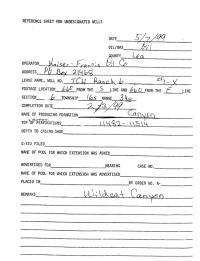 REFERENCE SHEET FOR UNDESIGNATED WELLS
DATE 5/7/99
OIL/GAS Oil
COUNTY Lea
OPERATOR Kaiser-Francis Oil Co
ADDRESS PO Box 21468
LEASE NAME, WELL NO. TCU Ranch 6 #1-X
FOOTAGE LOCATION 660 FROM THE S LINE AND 660 FROM THE E LINE
SECTION 6 TOWNSHIP 16s RANGE
COMPLETION DATE
NAME OF PRODUCING FORMATION Canyon
TOP OF PERFORATIONS 11482-11514
DEPTH TO CASING SHOE
C-123 FILED
NAME OF POOL FOR WHICH EXTENSION WAS ASKED
ADVERTISED FOR HEARING CASE NO.
NAME OF POOL FOR WHICH EXTENSION WAS ADVERTISED
PLACED IN BY ORDER NO. R-
REMARKS Wildcat Canyon